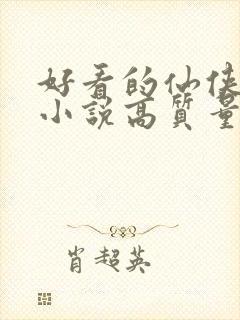 好看的仙侠
小说高质量
肖超英